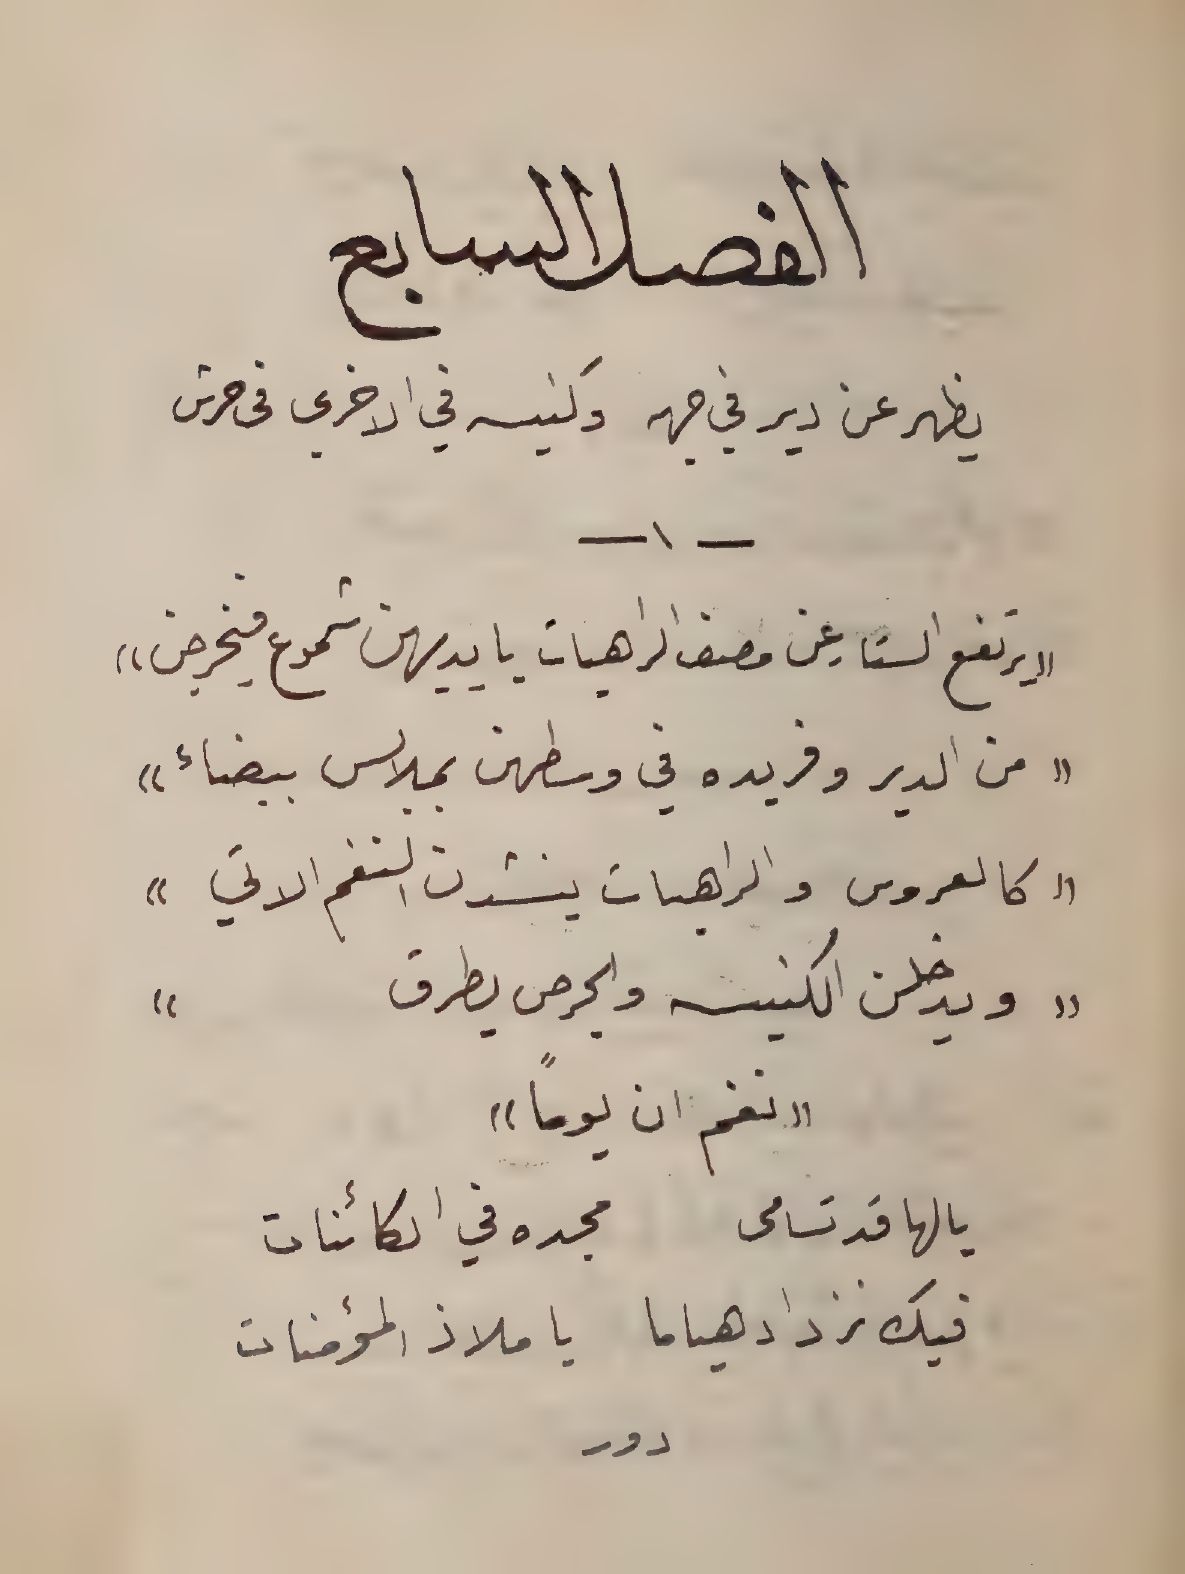 الفصل السابع
يظهر عن دير في جهه وكنيسه في الاخرى في حرش
— ١ —
«يرتفع الستار عن مصف الراهبات بايديهن شموع فيخرجن»
« من الدير وفريده في وسطهن بملابس بيضاء »
« كالعروس والراهبات ينشدن النغم الاتي »
« ويدخلن الكنيسه والجرس يطرق »
«نغم ان يوماً»
يالها قد تسامى مجده في الكائنات
فيك نزداد هياما يا ملاذ المؤمنات
دور